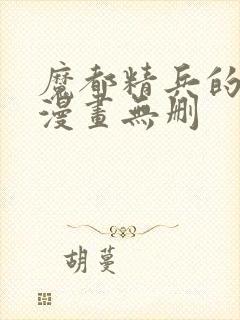 魔都精兵的
漫畫無刪
胡蔓